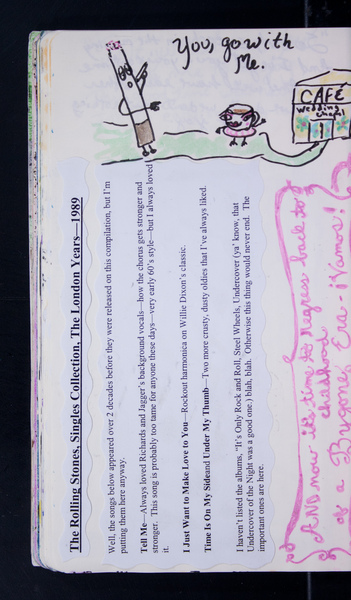 You, go with
Me.
CAFÉ
Wedding
Chapel
The Rolling Stones, Singles Collection, The London Years—1989
Well, the songs below appeared over 2 decades before they were released on this compilation, but I'm
putting them here anyway.
Tell Me—Always loved Richards and Jagger's background vocals—how the chorus gets stronger and
stronger. This song is probably too tame for anyone these days—very early 60's style—but I always loved
it.
I Just Want to Make Love to You—Rockout harmonica on Willie Dixon's classic.
Time Is On My Side and Under My Thumb—Two more crusty, dusty oldies that I've always liked.
I haven't listed the albums, "It's Only Rock and Roll, Steel Wheels, Undercover (ya' know, that
Undercover of the Night was a good one.) blah, blah. Otherwise this thing would never end. The
important ones are here.
AND now it's time to regress back to
childhood
of a Bygone Era - ¡Vamos!